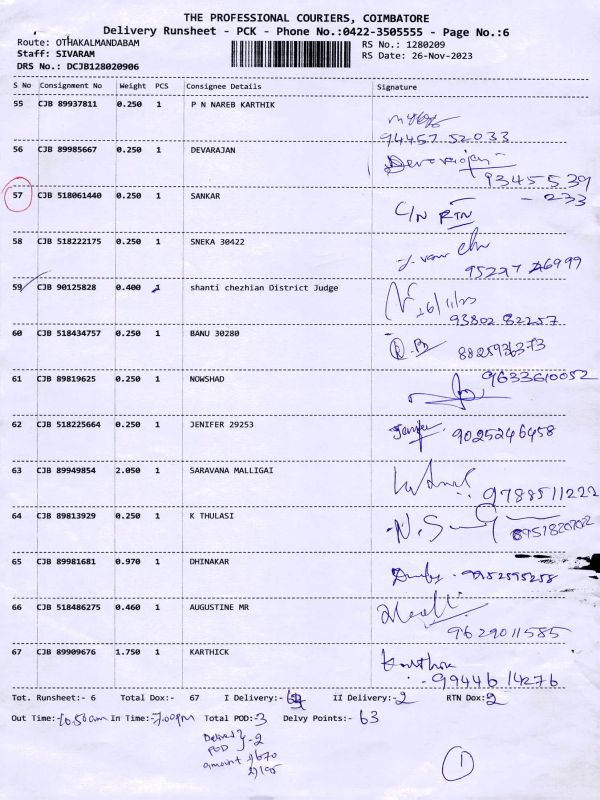 THE PROFESSIONAL COURIERS, COIMBATORE
Delivery Runsheet - PCK - Phone No.:0422-3505555 - Page No.:6
Route: OTHAKALMANDABAM RS No.: 1280209
Staff: SIVARAM RS Date: 26-Nov-2023
DRS No.: DCJB128020906
S No Consignment No Weight PCS Consignee Details Signature
55 CJB 89937811 0.250 1 P N NAREB KARTHIK
94457 52033
56 CJB 89985667 0.250 1 DEVARAJAN Devarajan
93455 39
- 233
57 CJB 518061440 0.250 1 SANKAR C/N RTN
58 CJB 518222175 0.250 1 SNEKA 30422
59 CJB 90125828 0.400 1 shanti chezhian District Judge
26/11/23
93802 82257
60 CJB 518434757 0.250 1 BANU 30280
61 CJB 89819625 0.250 1 NOWSHAD 9633610052
62 CJB 518225664 0.250 1 JENIFER 29253 Jenifer 9025246458
63 CJB 89949854 2.050 1 SARAVANA MALLIGAI 9788511222
64 CJB 89813929 0.250 1 K THULASI
65 CJB 89981681 0.970 1 DHINAKAR 9952595258
66 CJB 518486275 0.460 1 AUGUSTINE MR
9629011585
67 CJB 89909676 1.750 1 KARTHICK Karthick
99446 14276
Tot. Runsheet:- 6 Total Dox:- 67 I Delivery:- II Delivery:-2 RTN Dox:2
Out Time:-10.50am In Time:-7.00pm Total POD:-3 Delvy Points:- 63
POD -2
amount
1